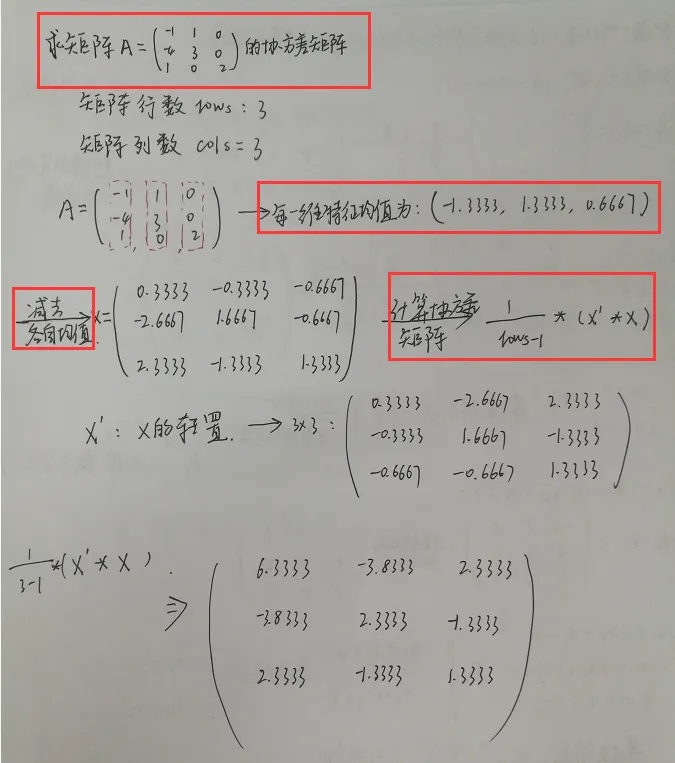 求矩阵 A = ( -1 1 0
-4 3 0
1 0 2 ) 的协方差矩阵
矩阵行数 rows : 3
矩阵列数 cols = 3
A = ( -1 1 0
-4 3 0
1 , 0 , 2 ) → 每一维特征均值为: (-1.3333, 1.3333, 0.6667)
减去
各自均值. X = ( 0.3333 -0.3333 -0.6667
-2.6667 1.6667 -0.6667
2.3333 -1.3333 1.3333 )
计算协方差
矩阵 1/(rows-1) * (X' * X)
X' : X的转置. → 3×3 : ( 0.3333 -2.6667 2.3333
-0.3333 1.6667 -1.3333
-0.6667 -0.6667 1.3333 )
1/(3-1) * (X' * X ) .
⇒ ( 6.3333 -3.8333 2.3333
-3.8333 2.3333 -1.3333
2.3333 -1.3333 1.3333 )